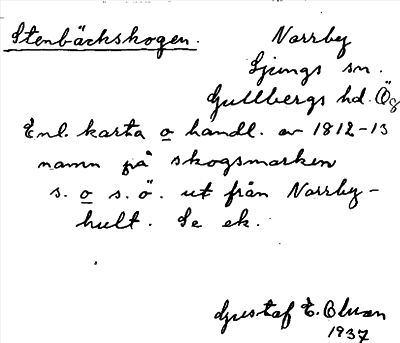 Stenbäckskogen. Norrby
Ljungs sn.
Gullbergs hd. Ög
Enl. karta o handl. av 1812-13
namn på skogsmarken
s. o s. ö. ut från Norrby-
hult. Se ek.
Gustaf E. Bluan
1937